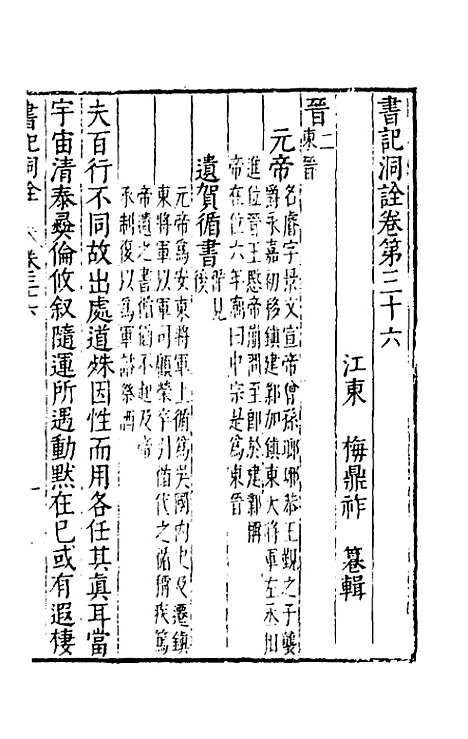 書記洞詮卷第三十六
江東 梅鼎祚 纂輯
晉二
東晉
元帝
名睿字景文宣帝曾孫瑯琊恭王覲之子襲
爵永嘉初移鎮建鄴加鎮東大將軍左丞相
進位晉王愍帝崩問至即於建鄴稱
帝在位六年廟曰中宗是爲東晉
遺賀循書
循見後
元帝爲安東將軍上循爲吳國內史及遷鎮
東將軍以軍司顧榮卒引循代之循稱疾篤
帝遺之書循猶不起及帝
承制復以爲軍諮祭酒
夫百行不同故出處道殊因性而用各任其眞耳當
宇宙清泰彝倫攸叙隨運所遇動默在已或有遐棲
書記洞詮 卷三十六 一